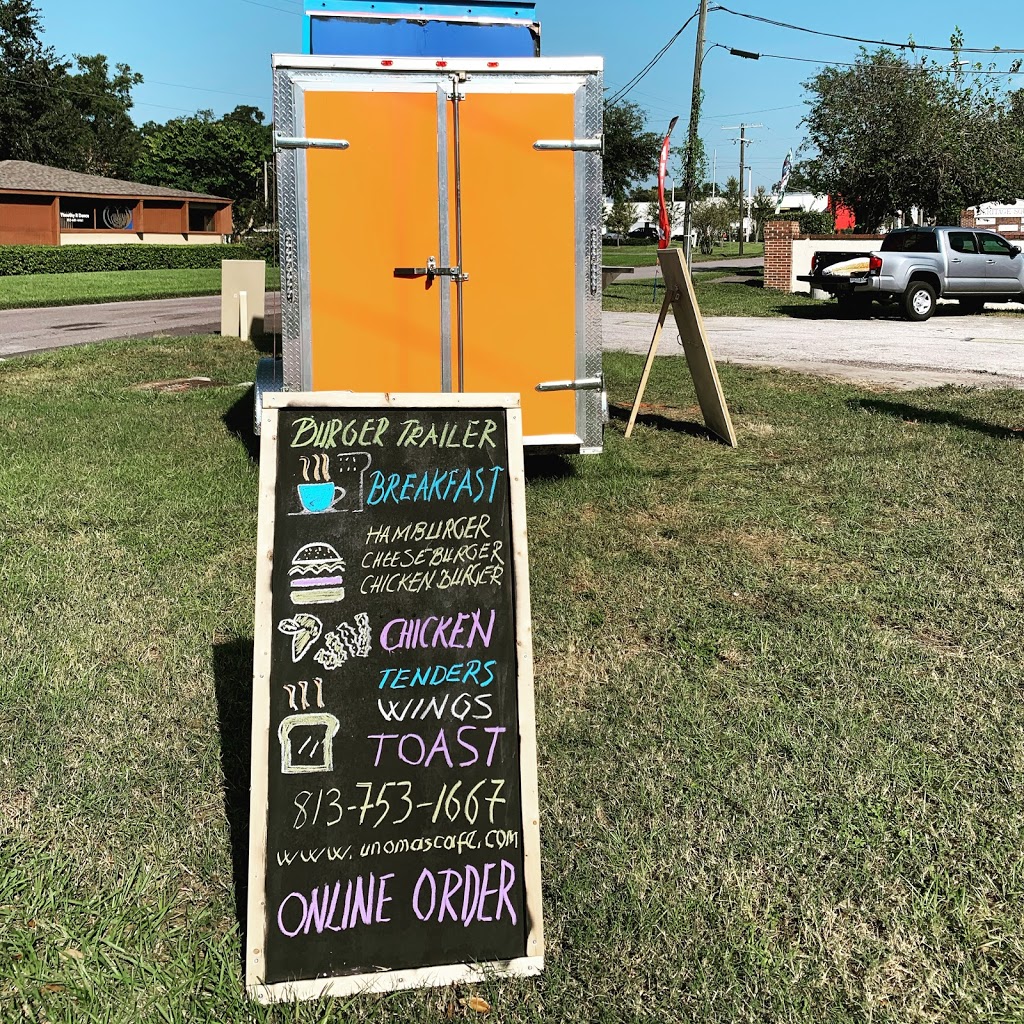 BURGER TRAILER
BREAKFAST
HAMBURGER
CHEESEBURGER
CHICKEN BURGER
CHICKEN
TENDERS
WINGS
TOAST
813-753-1667
www.unomascafe.com
ONLINE ORDER